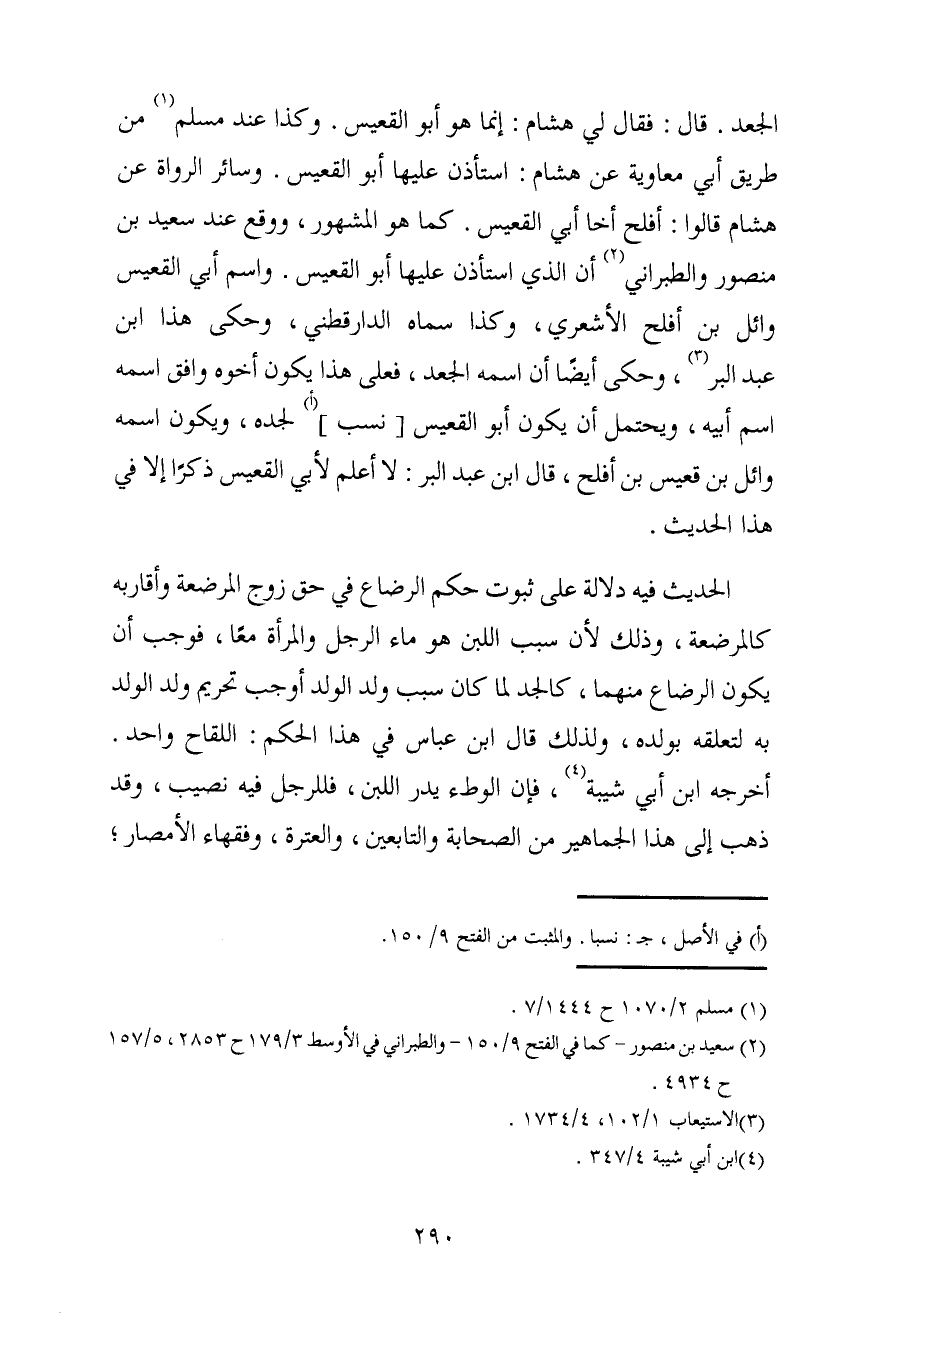 الجعد . قال : فقال لي هشام : إنما هو أبو القعيس . وكذا عند مسلم(١) من
طريق أبي معاوية عن هشام : استأذن عليها أبو القعيس . وسائر الرواة عن
هشام قالوا : أفلح أخا أبي القعيس . كما هو المشهور ، ووقع عند سعيد بن
منصور والطبراني(٢) أن الذي استأذن عليها أبو القعيس . واسم أبي القعيس
وائل بن أفلح الأشعري ، وكذا سماه الدارقطني ، وحكى هذا ابن
عبد البر(٣) ، وحكى أيضًا أن اسمه الجعد ، فعلى هذا يكون أخوه وافق اسمه
اسم أبيه ، ويحتمل أن يكون أبو القعيس [ نسب ](أ) لجده ، ويكون اسمه
وائل بن قعيس بن أفلح ، قال ابن عبد البر : لا أعلم لأبي القعيس ذكرًا إلا في
هذا الحديث .
الحديث فيه دلالة على ثبوت حكم الرضاع في حق زوج المرضعة وأقاربه
كالمرضعة ، وذلك لأن سبب اللبن هو ماء الرجل والمرأة معًا ، فوجب أن
يكون الرضاع منهما ، كالجد لما كان سبب ولد الولد أوجب تحريم ولد الولد
به لتعلقه بولده ، ولذلك قال ابن عباس في هذا الحكم : اللقاح واحد .
أخرجه ابن أبي شيبة(٤) ، فإن الوطء يدر اللبن ، فللرجل فيه نصيب ، وقد
ذهب إلى هذا الجماهير من الصحابة والتابعين ، والعترة ، وفقهاء الأمصار ؛
(أ) في الأصل ، جـ : نسبا . والمثبت من الفتح ٩/ ١٥٠.
(١) مسلم ١٠٧٠/٢ ح ٧/١٤٤٤ .
(٢) سعيد بن منصور - كما في الفتح ١٥٠/٩ - والطبراني في الأوسط ١٧٩/٣ ح ٢٨٥٣ ، ١٥٧/٥
ح ٤٩٣٤ .
(٣)الاستيعاب ١٠٢/١، ١٧٣٤/٤ .
(٤)ابن أبي شيبة ٣٤٧/٤ .
٢٩٠